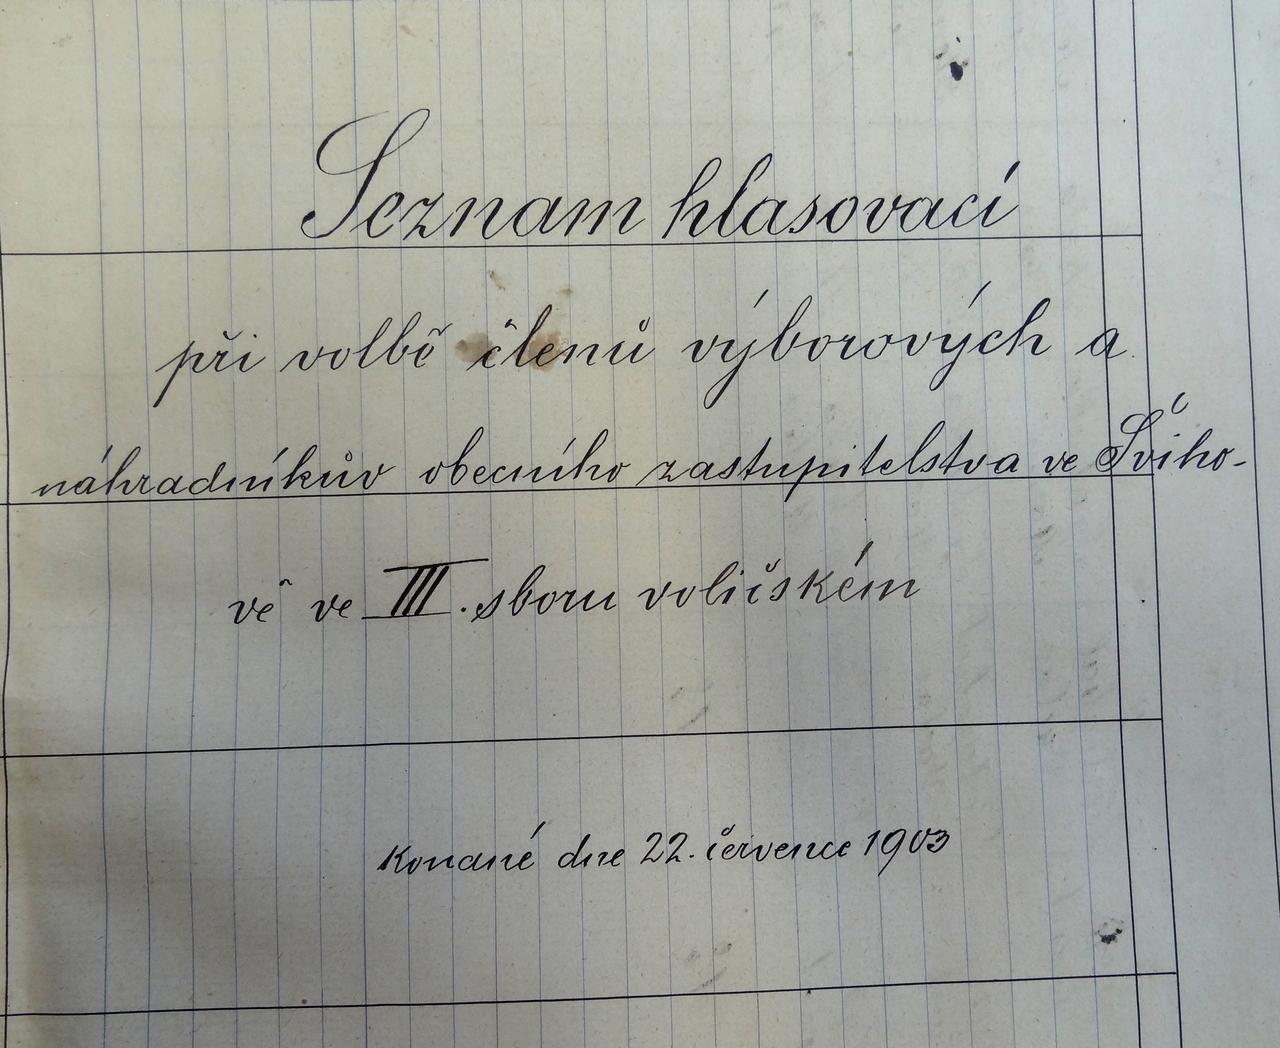 Seznam hlasovací
při volbě členů výborových a
náhradníkův obecního zastupitelstva ve Šviho-
vě ve III. sboru voličském
Konané dne 22. července 1903